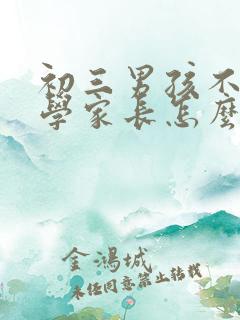 初三男孩不
學家長怎麼
金鴻城
未經同意禁止轉載